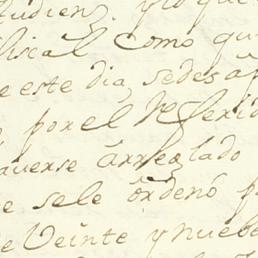 fiscal como qu
e este dia, sedesap
por el Referid
averse arreglado
e sele ordenó p
e Veinte y nueb